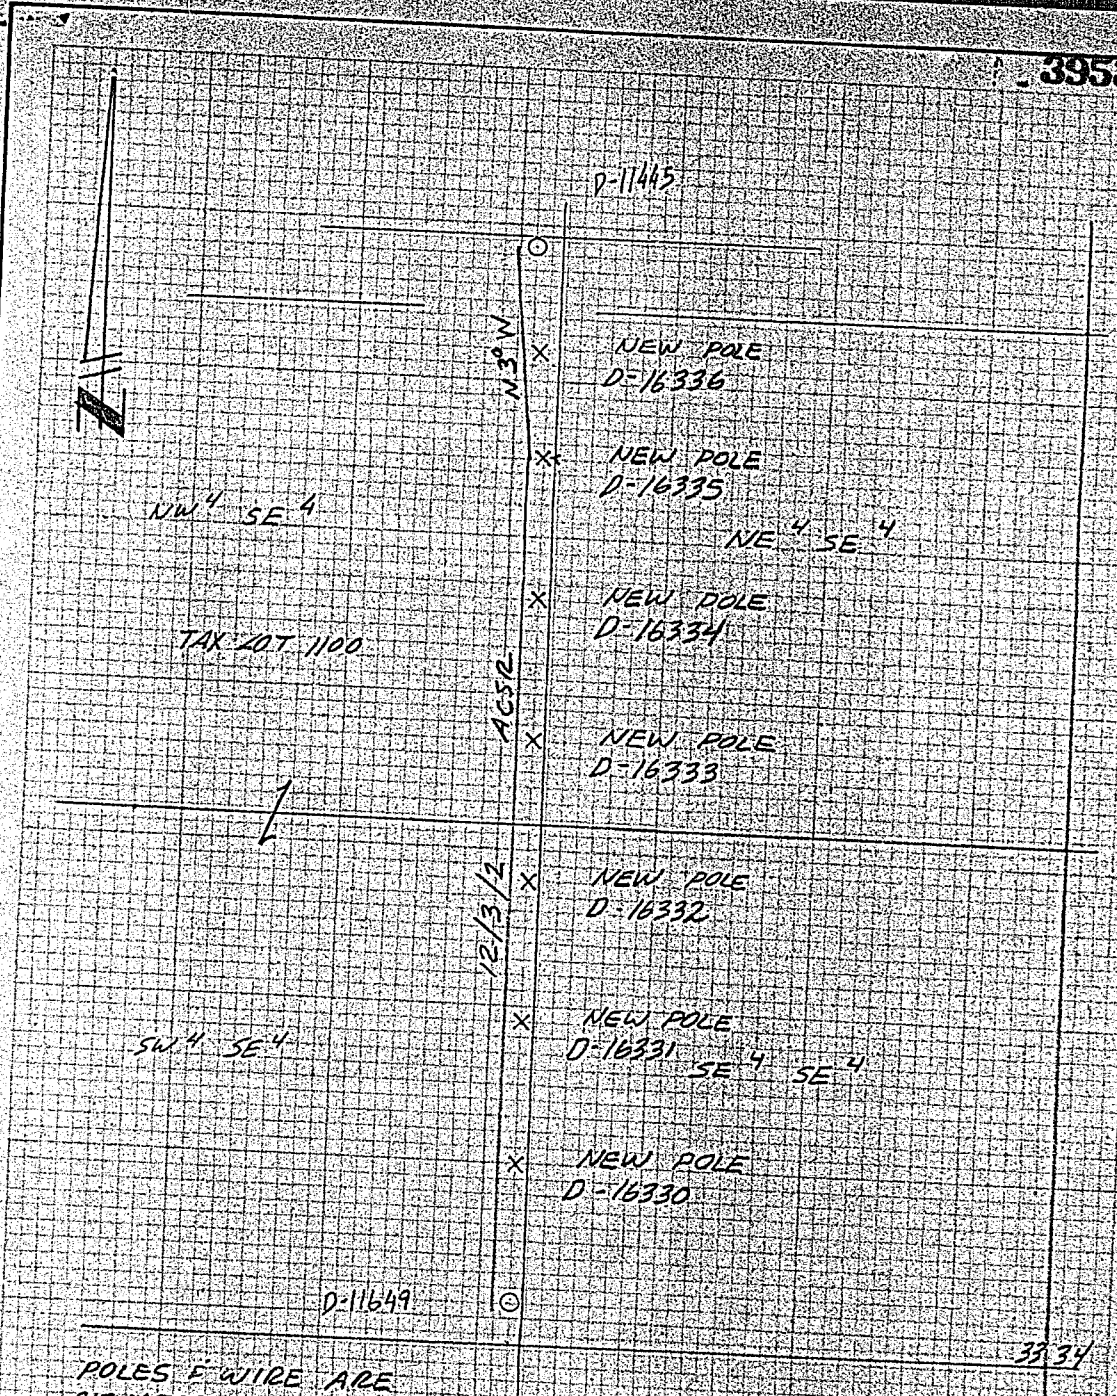 395
D-11445
N.3° W
NEW POLE
D-16336
NEW POLE
D-16335
NW 4 SE 4
NE 4 SE 4
NEW POLE
D-16334
TAX LOT 1100
ACSR
NEW POLE
D-16333
1
12/3/2
NEW POLE
D-16332
NEW POLE
D-16331
SW 4 SE 4
SE 4 SE 4
NEW POLE
D-16330
D-11649
33 34
POLES & WIRE ARE